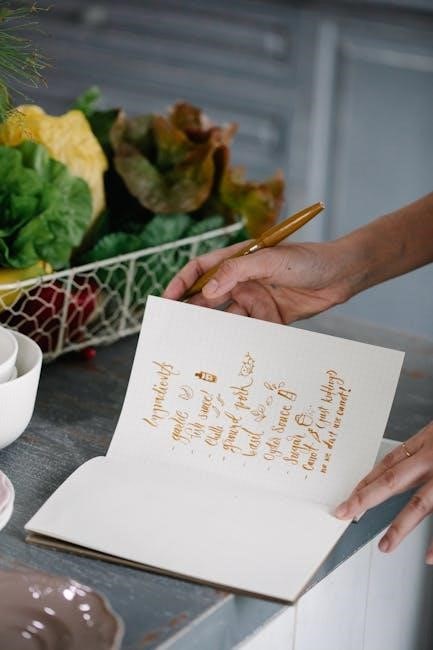 Ingredients
- garlic
- Fish sauce!
- Chilli
- ground pork
- basil
- Oyster Sauce
- Sugar
- Carrot (just kidding!
no we don't use carrot!)